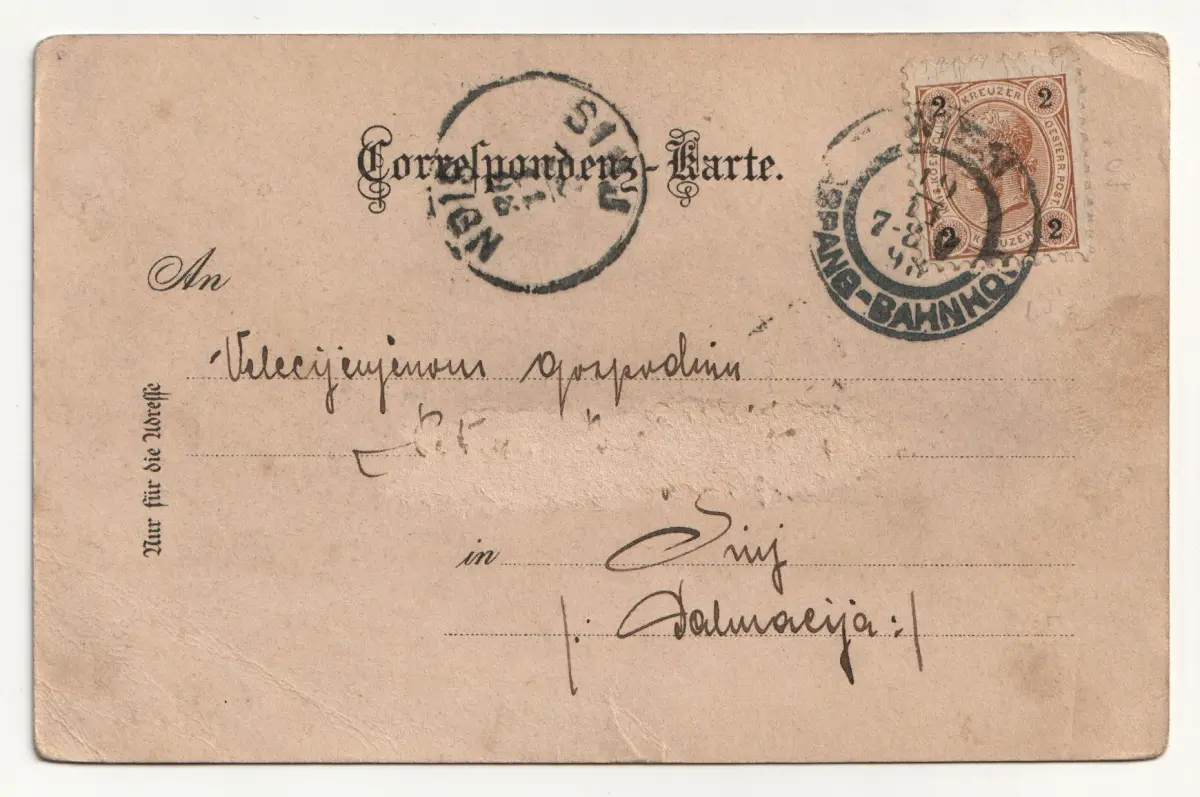 Correspondenz-Karte.
SINJ
SIGN
2 KREUZER 2
OESTERR. POST
2 KREUZER 2
WIEN
7-8
98
ASPANG-BAHNHOF
An
Velecijenjenom gospodinu
in Sinj
/: Dalmacija :/
Nur für die Adresse